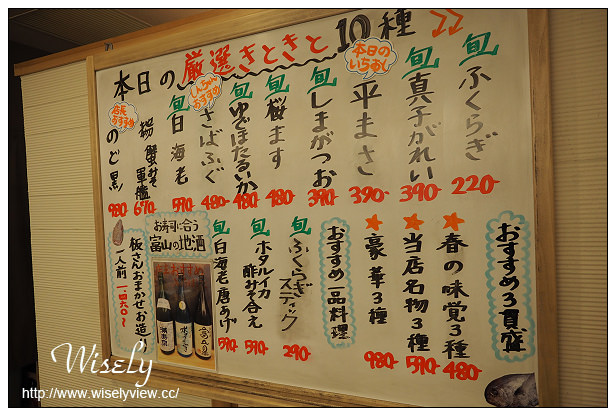 本日の厳選きときと10種
旬 ふくらぎ 220-
旬 真子がれい 390-
本日のいちおし
平まさ 390-
旬 しまがつお 390-
旬 桜ます 480-
旬 ゆでほたるいか 480-
しんちゃんおすすめ
さばふぐ 480-
旬 白海老 570-
蟹みそ軍艦 670-
店長おすすめ
のど黒 980-
おすすめ3貫盛
★春の味覚3種 480-
★当店名物3種 570-
★豪華3種 980-
おすすめ一品料理
旬 ふくらぎスティック 290-
旬 ホタルイカ酢みそ合え 570-
旬 白海老唐あげ 570-
お寿司に合う
富山の地酒
板さんおまかせ(お造り)
一人前 1.460~
Wisely
http://www.wiselyview.cc/